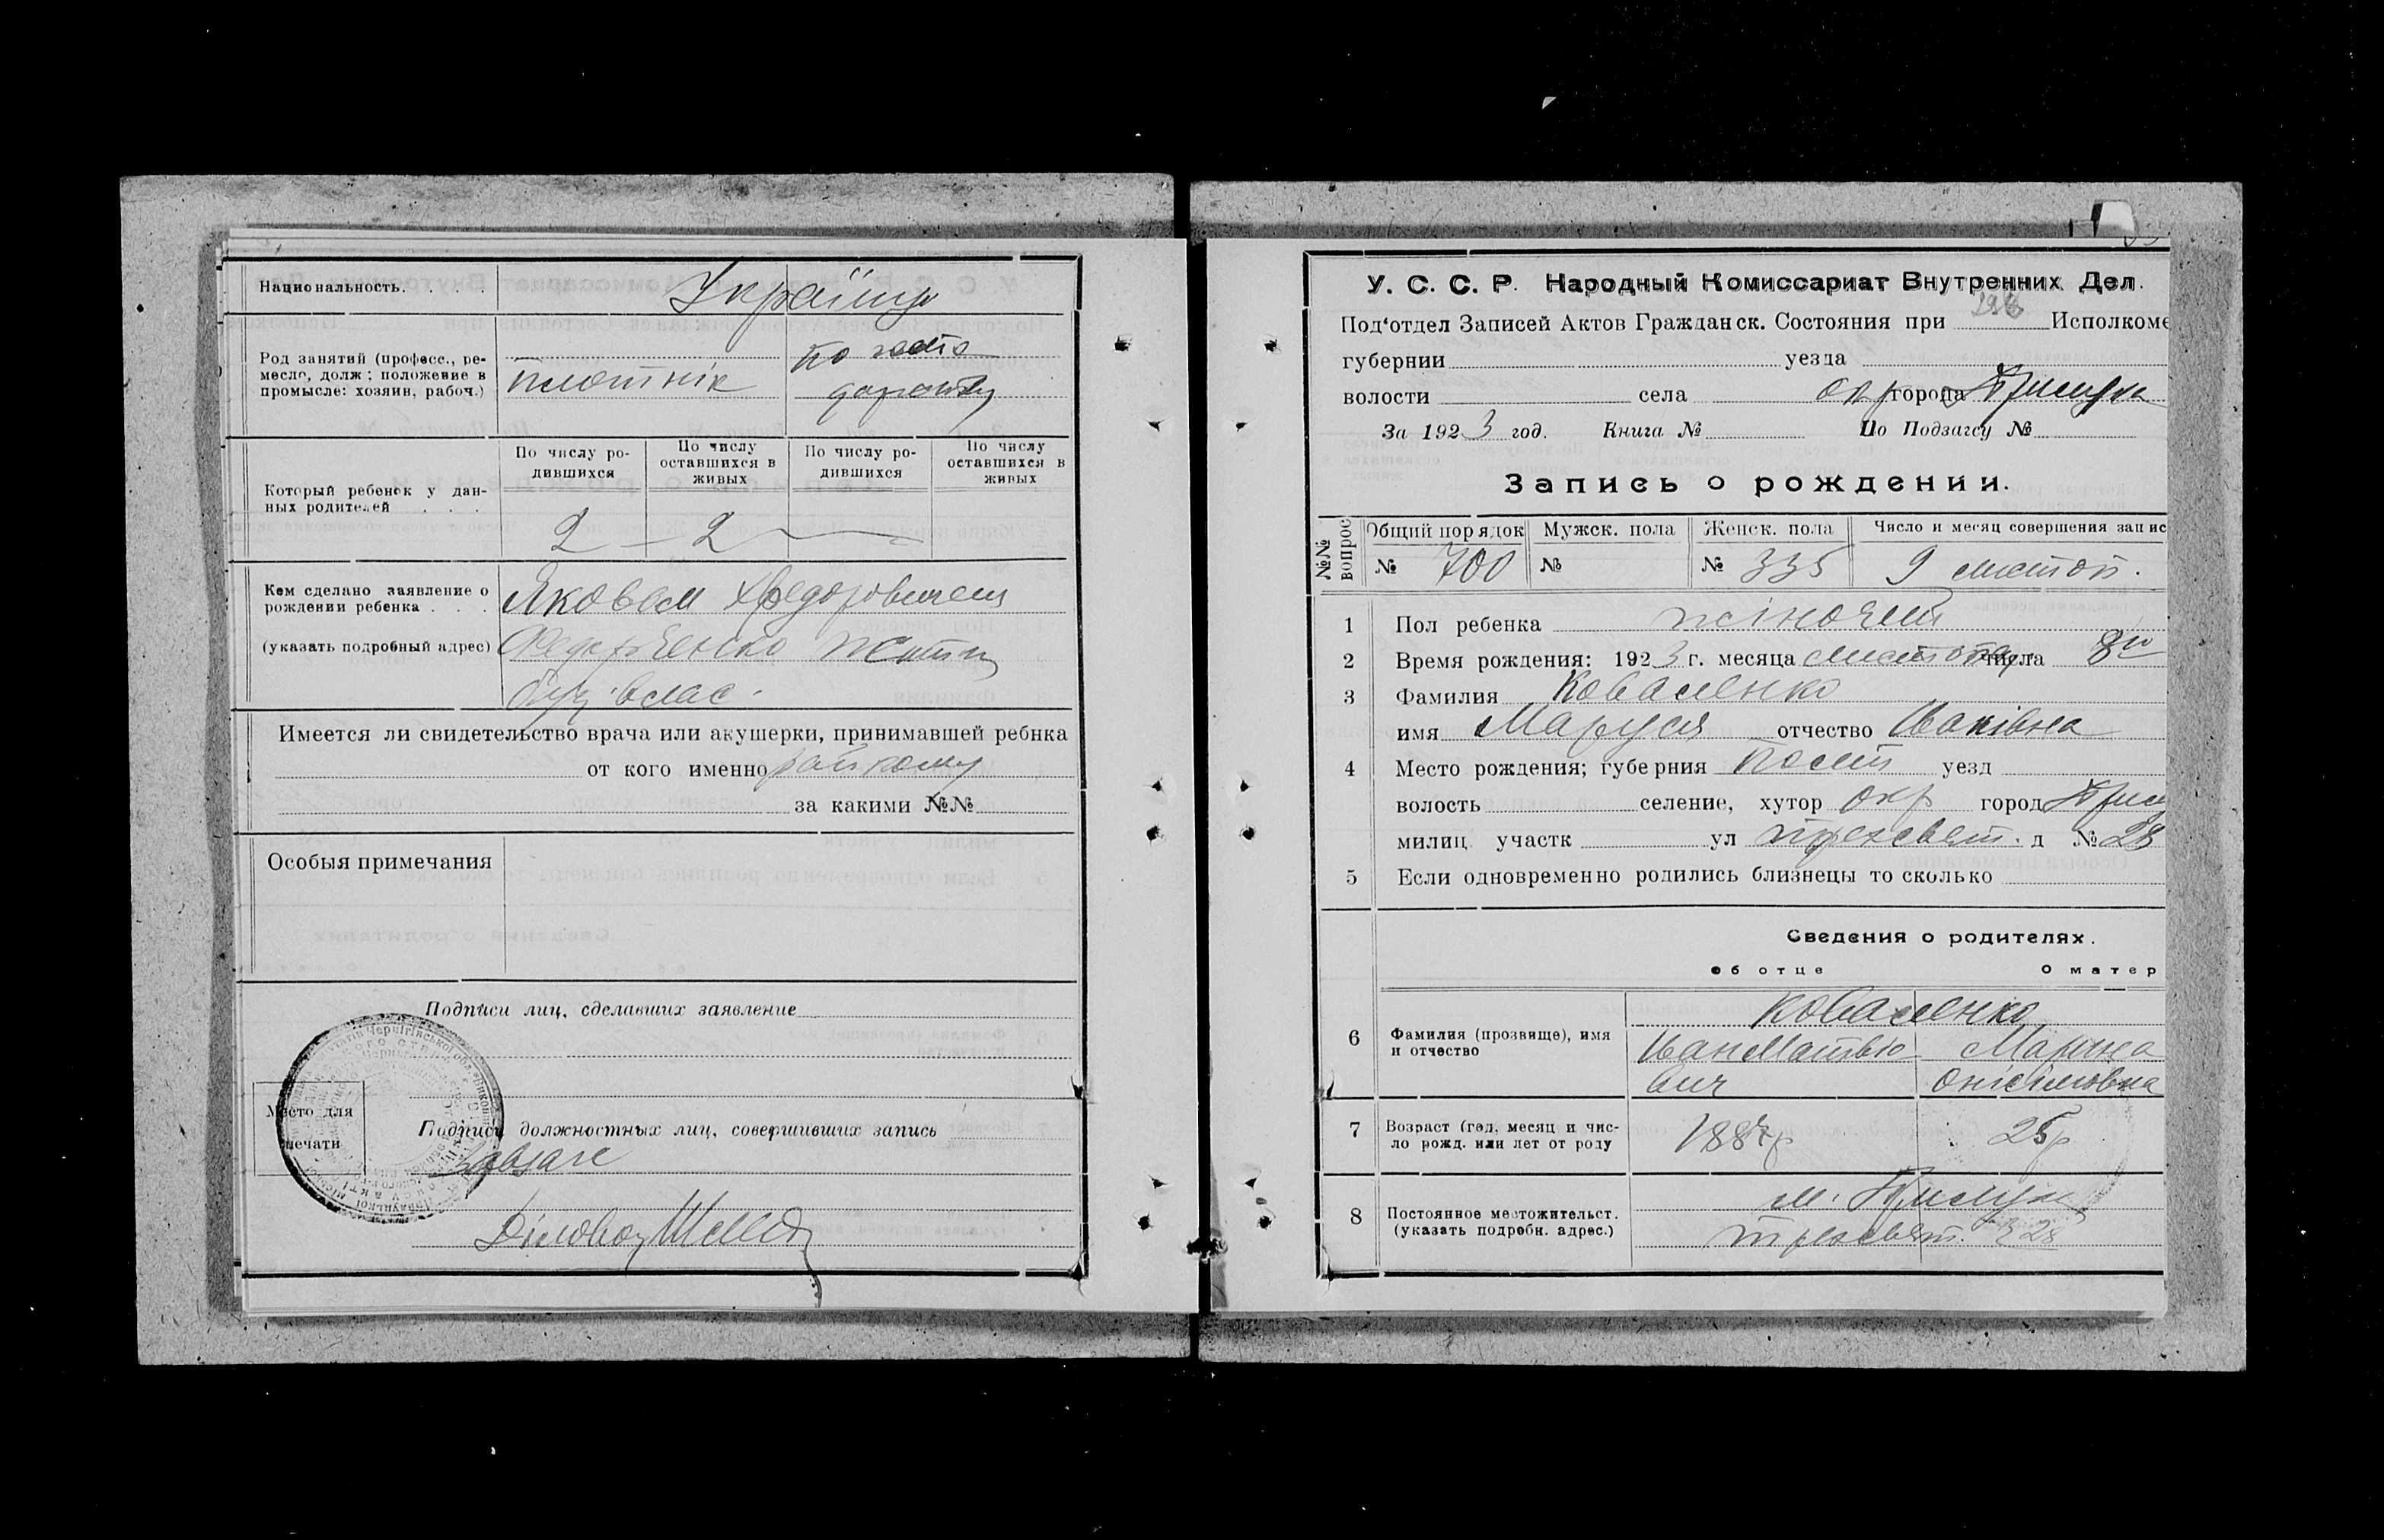 Национальность. . . .
Українці
Род занятий (професс., ре-
месло, долж; положение в
промысле: хозяин, рабоч.)
плотнік
по
Который ребенок у дан-
ных родителей . . .
По числу ро-
дившихся
По числу
оставшихся в
живых
По числу ро-
дившихся
По числу
оставшихся в
живых
2 — 2
Кем сделано заявление о
рождении ребенка . . .
(указать подробный адрес)
Яковом Хведоровичем
Имеется ли свидетельство врача или акушерки, принимавшей ребнка
от кого именно
за какими №№
Особыя примечания
Подписи лиц, сделавших заявление
Место для
печати
Подписи должностных лиц, совершивших запись
Завзагс
Діловод
У. С. С. Р. Народный Комиссариат Внутренних Дел.
Под'отдел Записей Актов Гражданск. Состояния при Исполкоме
губернии уезда
волости села окр города Прилуки
За 1923 год. Книга № По Подзагсу №
Запись о рождении.
№№ вопрос
Общий порядок
Мужск. пола
Женск. пола
Число и месяц совершения запис
№ 700 № № 335 9 листоп.
1 Пол ребенка жіночий
2 Время рождения: 1923 г. месяца листопад числа 8
3 Фамилия Коваленко
имя Маруся отчество Іванівна
4 Место рождения; губерния Полт уезд
волость селение, хутор окр город Прил
милиц. участк ул Трехсвят. д №28
5 Если одновременно родились близнецы то сколько
Сведения о родителях.
об отце О матер
6 Фамилия (прозвище), имя
и отчество
Коваленко
Иван Матвіе
вич
Марина
Онісімовна
7 Возраст (год, месяц и чис-
ло рожд. или лет от роду
1887р 25р
8 Постоянное местожительст.
(указать подробн. адрес.)
м. Прилуки
Трехсвят. 28